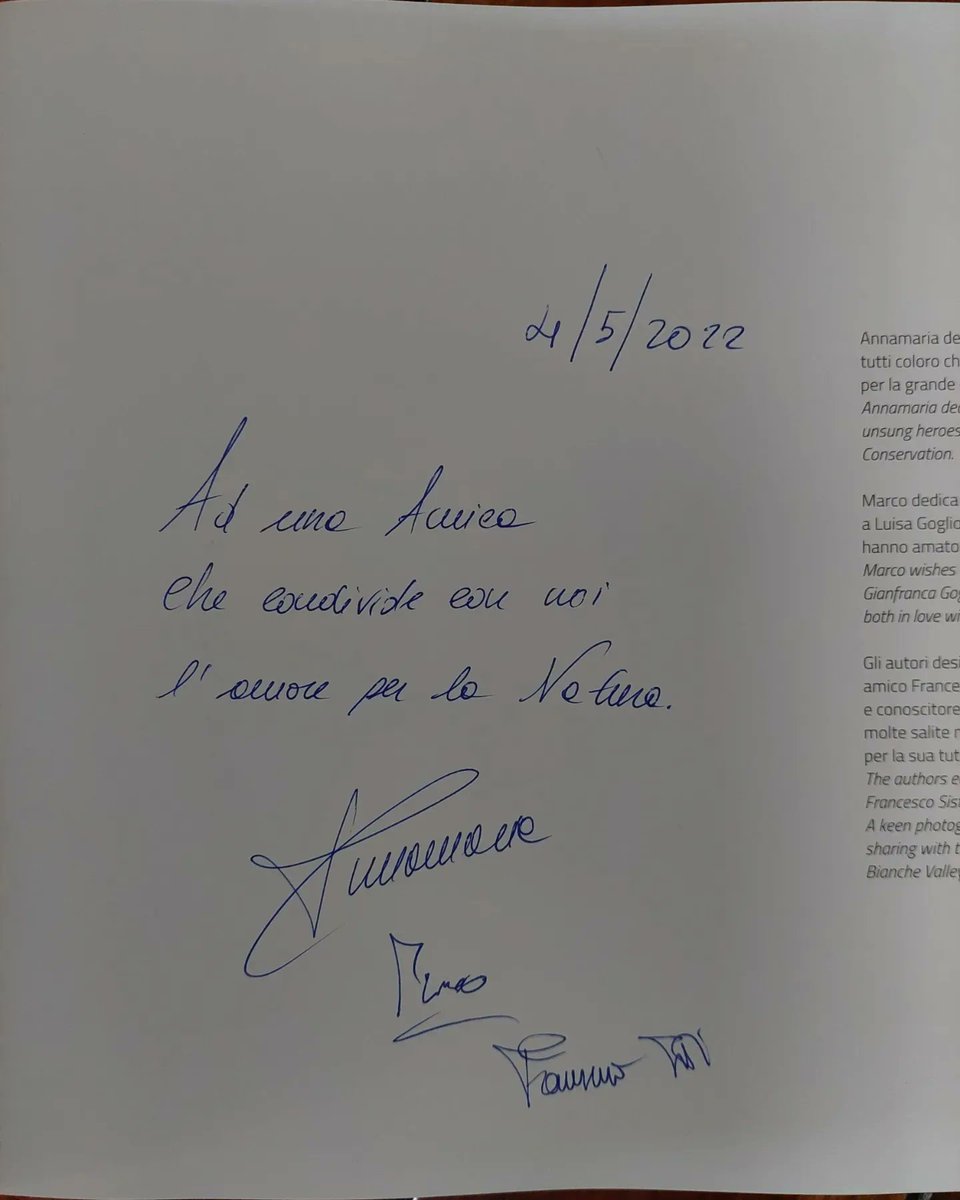 4/5/2022
Ad una Amica
che condivide con noi
l'amore per la Natura.
Annamaria
Marco
Annamaria de
tutti coloro ch
per la grande
Annamaria dec
unsung heroes
Conservation.
Marco dedica
a Luisa Goglio
hanno amato
Marco wishes
Gianfranca Gog
both in love wi
Gli autori desi
amico France
e conoscitore
molte salite n
per la sua tut
The authors e
Francesco Sist
A keen photog
sharing with t
Bianche Valley